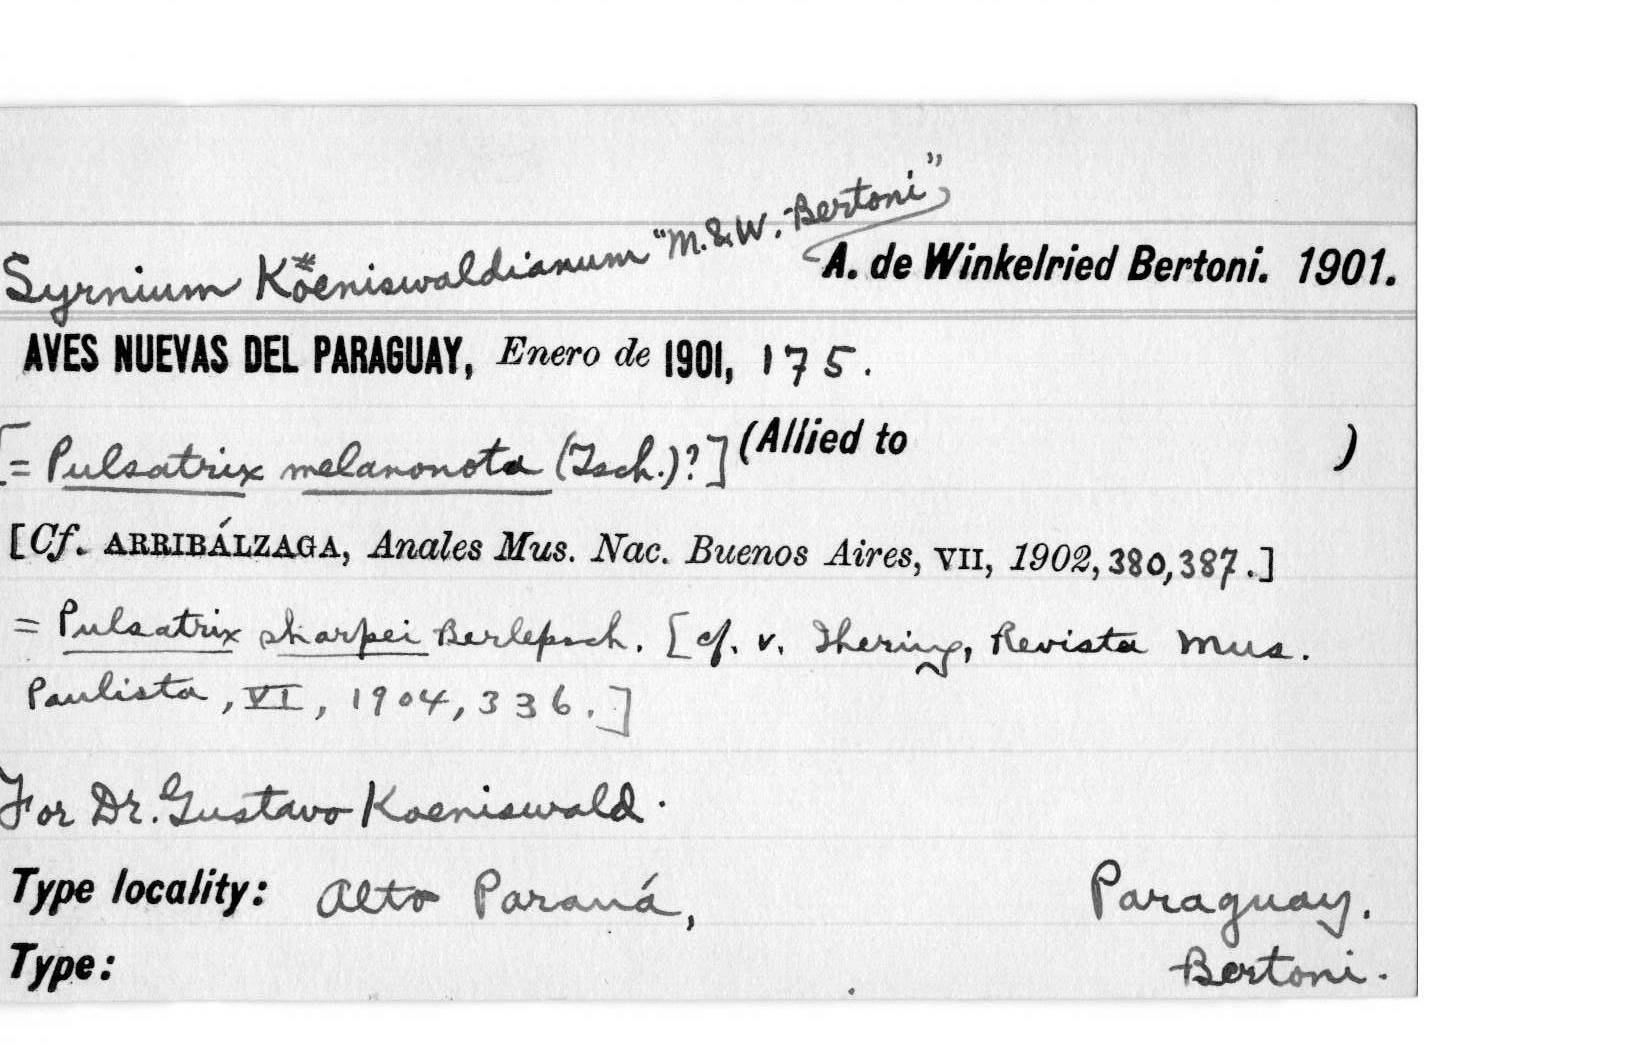 Syrnium Koeniswaldianum "M. & W. Bertoni"
A. de Winkelried Bertoni. 1901.
AVES NUEVAS DEL PARAGUAY, Enero de 1901, 175.
[= Pulsatrix melanonota (Tsch.)?] (Allied to )
[Cf. ARRIBÁLZAGA, Anales Mus. Nac. Buenos Aires, VII, 1902, 380, 387.]
= Pulsatrix sharpei Berlepsch. [cf. v. Ihering, Revista Mus.
Paulista, VI, 1904, 336.]
For Dr. Gustavo Koeniswald.
Type locality: Alto Paraná, Paraguay.
Type: Bertoni.